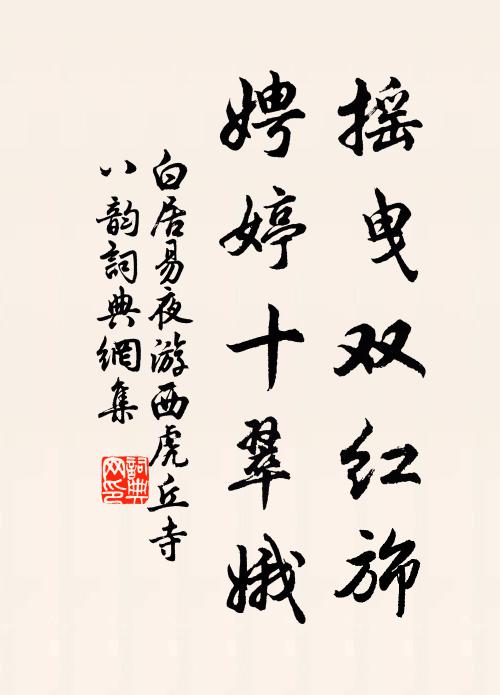 摇曳双红旆
娉婷十翠娥
白居易夜游西虎丘寺
八韵詞典網集
詞典
网印